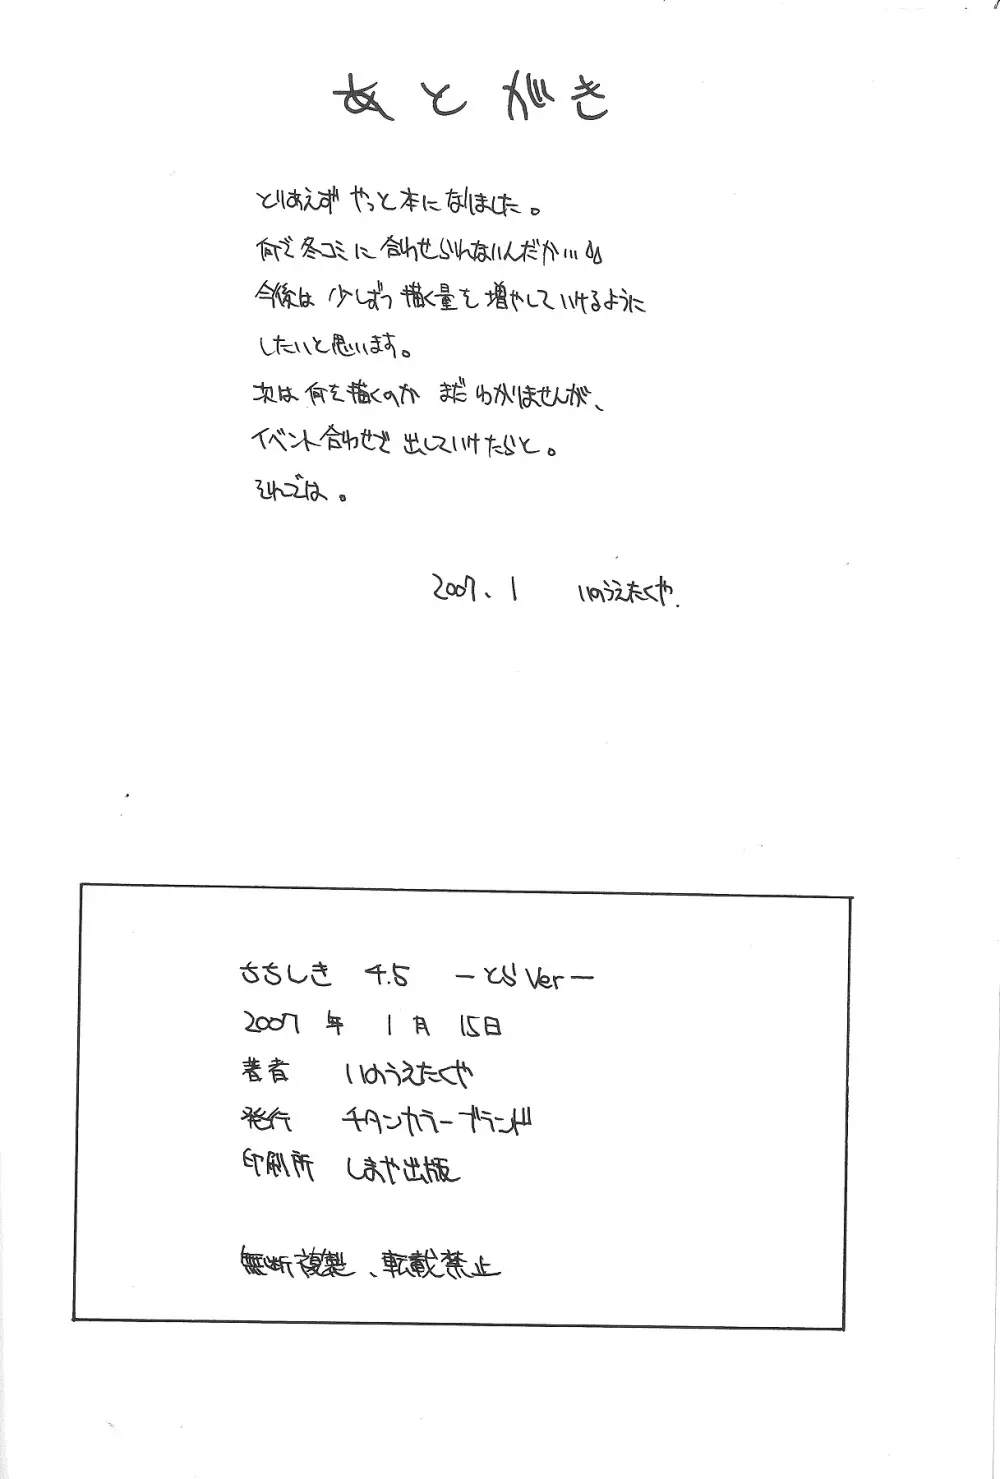 あとがき
とりあえず やっと本になりました。
何で冬コミに 合わせられないんだか…
今後は 少しずつ 描く量を 増やしていけるように
したいと思います。
次は 何を描くのか まだ わかりませんが、
イベント合わせで 出していけたらと。
それでは。
2007.1 いのうえたくや.
さちしき 4.5 ーとらVerー
2007 年 1 月 15日
著者 いのうえたくや
発行 チタンカラーブランド
印刷所 しまや出版
無断複製、転載禁止